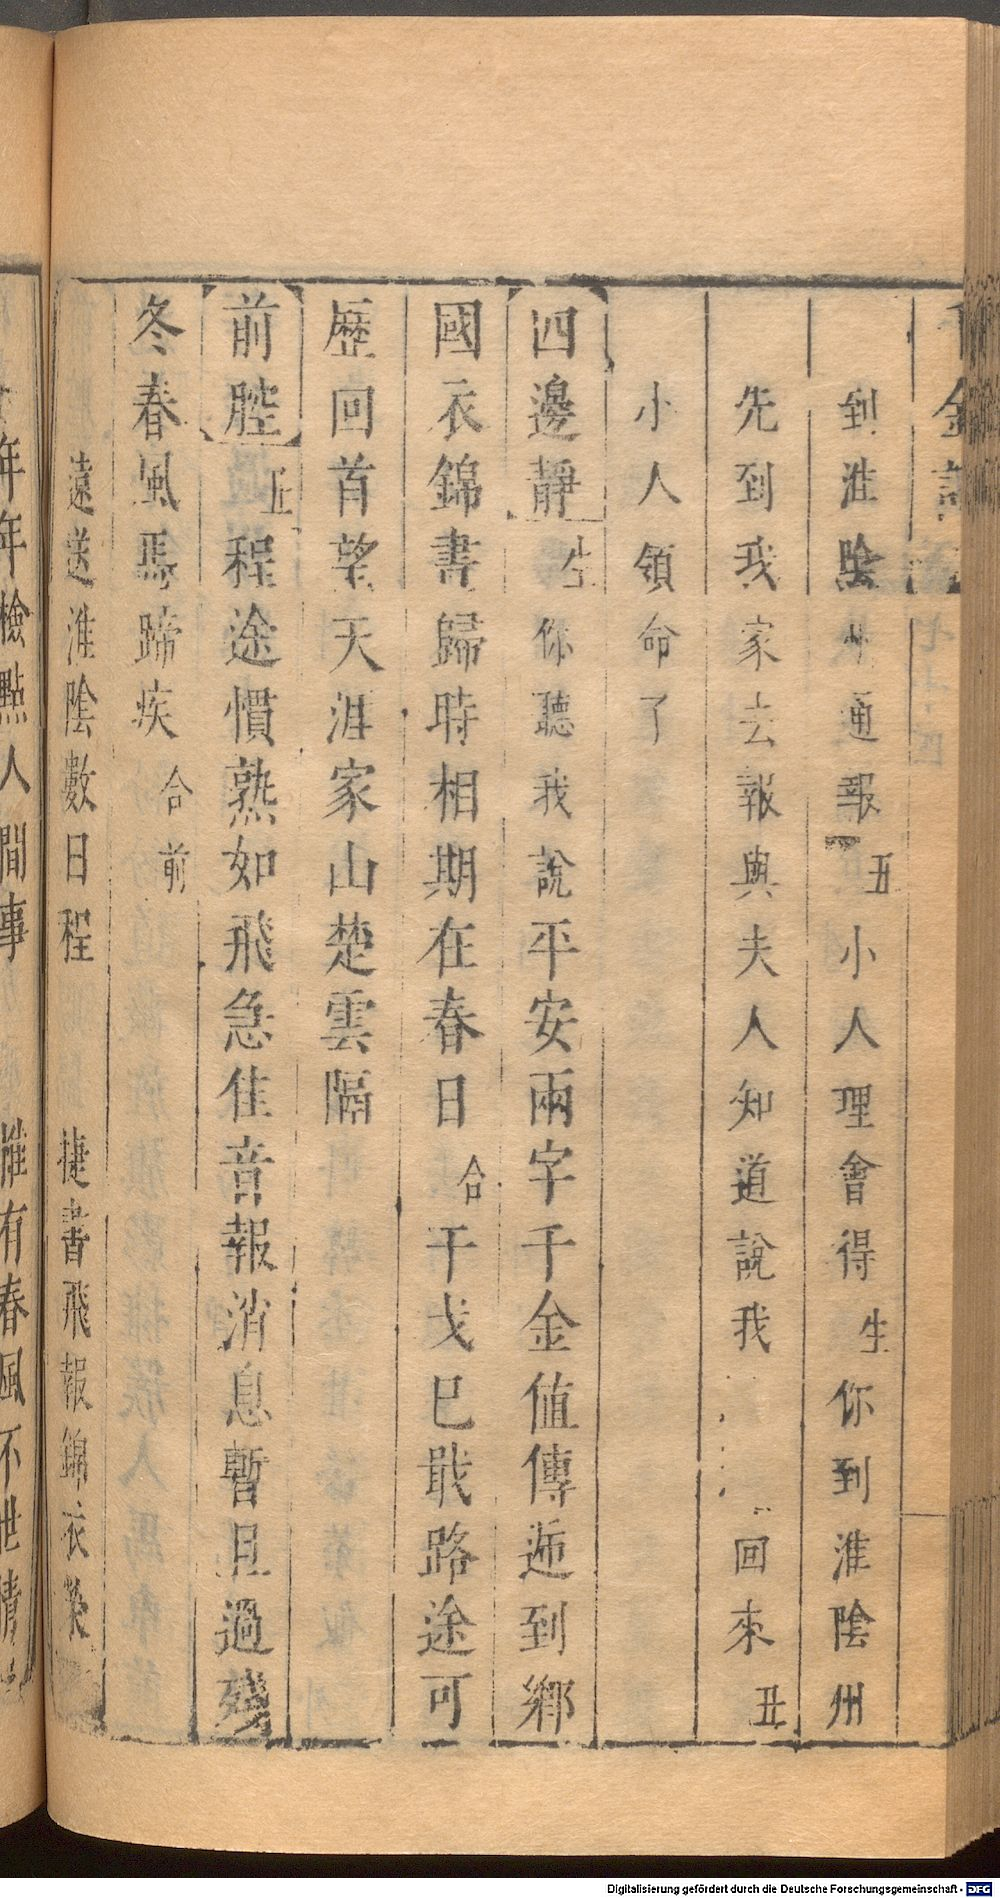 千金記
到淮陰州通報丑小人理會得生你到淮陰州
先到我家去報與夫人知道說我回來丑
小人領命了
四邊靜生你聽我說平安兩字千金值傳逓到鄉
國衣錦書歸時相期在春日合干戈已戢路途可
歷回首望天涯家山楚雲隔
前腔丑程途慣熟如飛急佳音報消息暫且過殘
冬春風馬蹄疾合前
遠送淮陰數日程 捷書飛報錦衣榮
年年檢點人間事 惟有春風不世情
Digitalisierung gefördert durch die Deutsche Forschungsgemeinschaft - DFG